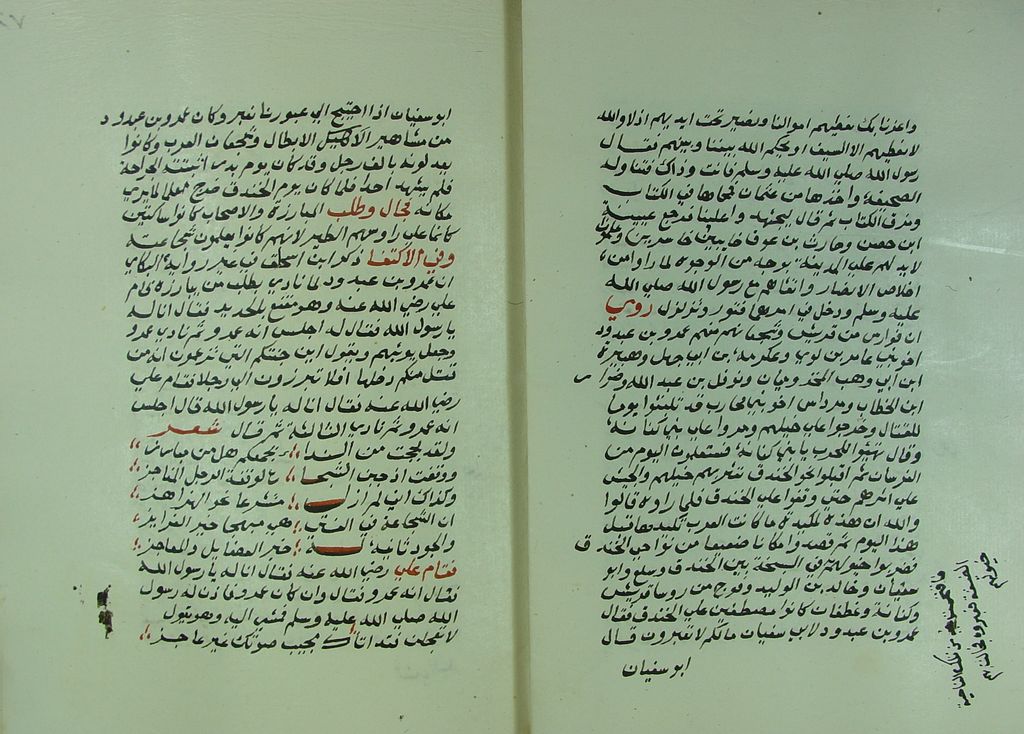 واعزنا بك نعطيهم اموالنا ونصير تحت ايديهم اذلا والله
لا نعطيهم الا السيف او يحكم الله بيننا وبينهم فقال
رسول الله صلي الله عليه وسلم فانت وذاك فتناوله
الصحيفة واخذها من عثمان فمحاها في الكتاب
ومزق الكتاب ثم قال ليجهد واعلينا فرجع عيينة
ابن حصن وحارث بن عوف خايبين خاسرين وعلموا
لا يد لهم علي المدينة بوجه من الوجوه لما راوا من
اخلاص الانصار واتفاقهم مع رسول الله صلي الله
عليه وسلم ودخل في امرهما فتور وتزلزل روي
ان فوارس من قريش وشجعانهم منهم عمرو بن عبدود
اخو بني عامر بن لوي وعكرمة بن ابي جهل وهبيرة
ابن ابي وهب المخزوميان ونوفل بن عبد الله وضرار
ابن الخطاب ومرداس اخو بني محارب قد تلبثوا يوما
للقتال وخرجوا علي خيلهم ومروا علي بني كنانة
وقال تهيئوا للحرب يا بني كنانة فستعلمون اليوم من
الفرسان ثم اقبلوا نحو الخندق تسرع بهم خيلهم والجيش
علي اثرهم حتي وقفوا علي الخندق فلما راوه قالوا
والله ان هذه لمكيدة ما كانت العرب تكيدها قبل
هذا اليوم ثم قصدوا مكانا ضيقا من نواحي الخندق
فضربوا خيولهم في السبخة بين الخندق وسلع وابو
سفيان وخالد بن الوليد وفوج من روسا قريش
وكنانة وغطفان كانوا مصطفين علي الخندق فقال
عمرو بن عبدود لابي سفيان مالكم لا تعبرون قال
ابو سفيان
ابو سفيان اذا احتيج الي عبورنا نعبر وكان عمرو بن عبدود
من مشاهير الابطال وشجعان العرب وكانوا
يعدلونه بالف رجل وقد كان يوم بدر اثبتته الجراحة
فلم يشهد احد فلما كان يوم الخندق خرج معلما ليري
مكانه فجال وطلب المبارزة والاصحاب كانوا ساكتين
كانما علي راوسهم الطير لانهم كانوا يعلمون شجاعته
وفي الاكتفا ذكر ابن اسحق في غير رواية البكاي
ان عمرو بن عبدود لما نادي يطلب من يبارزه قام
علي رضي الله عنه وهو مقنع بالحديد فقال انا له
يا رسول الله فقال له اجلس انه عمرو ثم نادي عمرو
وجعل يوبخهم ويقول اين جنتكم التي تزعمون انه من
قتل منكم دخلها افلا تبرزون الي رجلا فقام علي
رضي الله عنه فقال انا له يا رسول الله قال اجلس
انه عمرو ثم نادي الثالثة ثم قال شعر
ولقد بححت من الندا بجمعكم هل من مبارز
ووقفت اذ جبن الشجاع وقفة الرجل المناجز
وكذاك اني لم ازل متسرعا نحو الهزاهز
ان الشجاعة في الفتي هي منهما خير الغرايز
فقام علي رضي الله عنه فقال انا له يا رسول الله
فقال انه عمرو فقال وان كان عمرو فاذن له رسول
الله صلي الله عليه وسلم فمشي اليه وهو يقول
لا تعجلن فقد اتاك مجيب صوتك غير عاجز